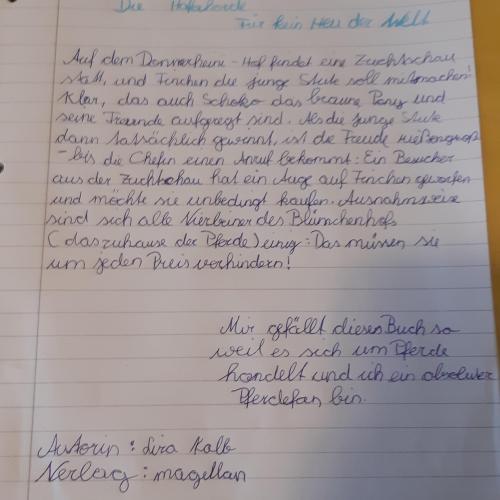 Die Haferhorde
Für kein Heu der Welt
Auf dem Donnerheim-Hof findet eine Zuchtschau
statt, und Finchen die junge Stute soll mitmachen!
Klar, das auch Schoko das braune Pony und
seine Freunde aufgregt sind. Als die junge Stute
dann tatsächlich gewinnt, ist die Freude rießengroß
- bis die Chefin einen Anruf bekommt: Ein Besucher
aus der Zuchtschau hat ein Auge auf Finchen geworfen
und möchte sie unbedingt kaufen. Ausnahmsweise
sind sich alle Vierbeiner des Blümchenhofs
(das zuhause der Pferde) einig: Das müssen sie
um jeden Preis verhindern!
Mir gefällt dieses Buch so
weil es sich um Pferde
handelt und ich ein absoluter
Pferdefan bin.
Autorin: Suza Kolb
Verlag: magellan